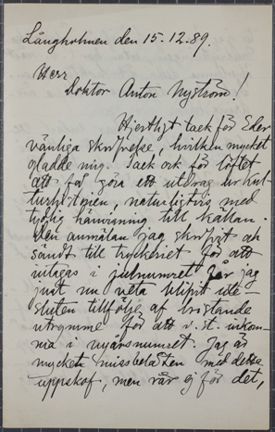 Långholmen den 15-12.89.
Herr
Doktor Anton Nyström!
Hjertligt tack för Eder
vänliga skrifvelse, hvilken mycket
gladde mig. Tack ock för löftet
att få göra ett utdrag ur Kul-
turhistorien, naturligtvis med
tydlig hänvisning till källan.
Den anmälan jag skrifvit och
sändt till tryckeriet för att
intagas i julnumret har jag
just nu veta blifvit ute-
sluten till följe af bristande
utrymme för att i st. inkom-
ma i nyårsnumret. Jag är
mycket missbelåten med detta
uppskof, men rår ej för det,